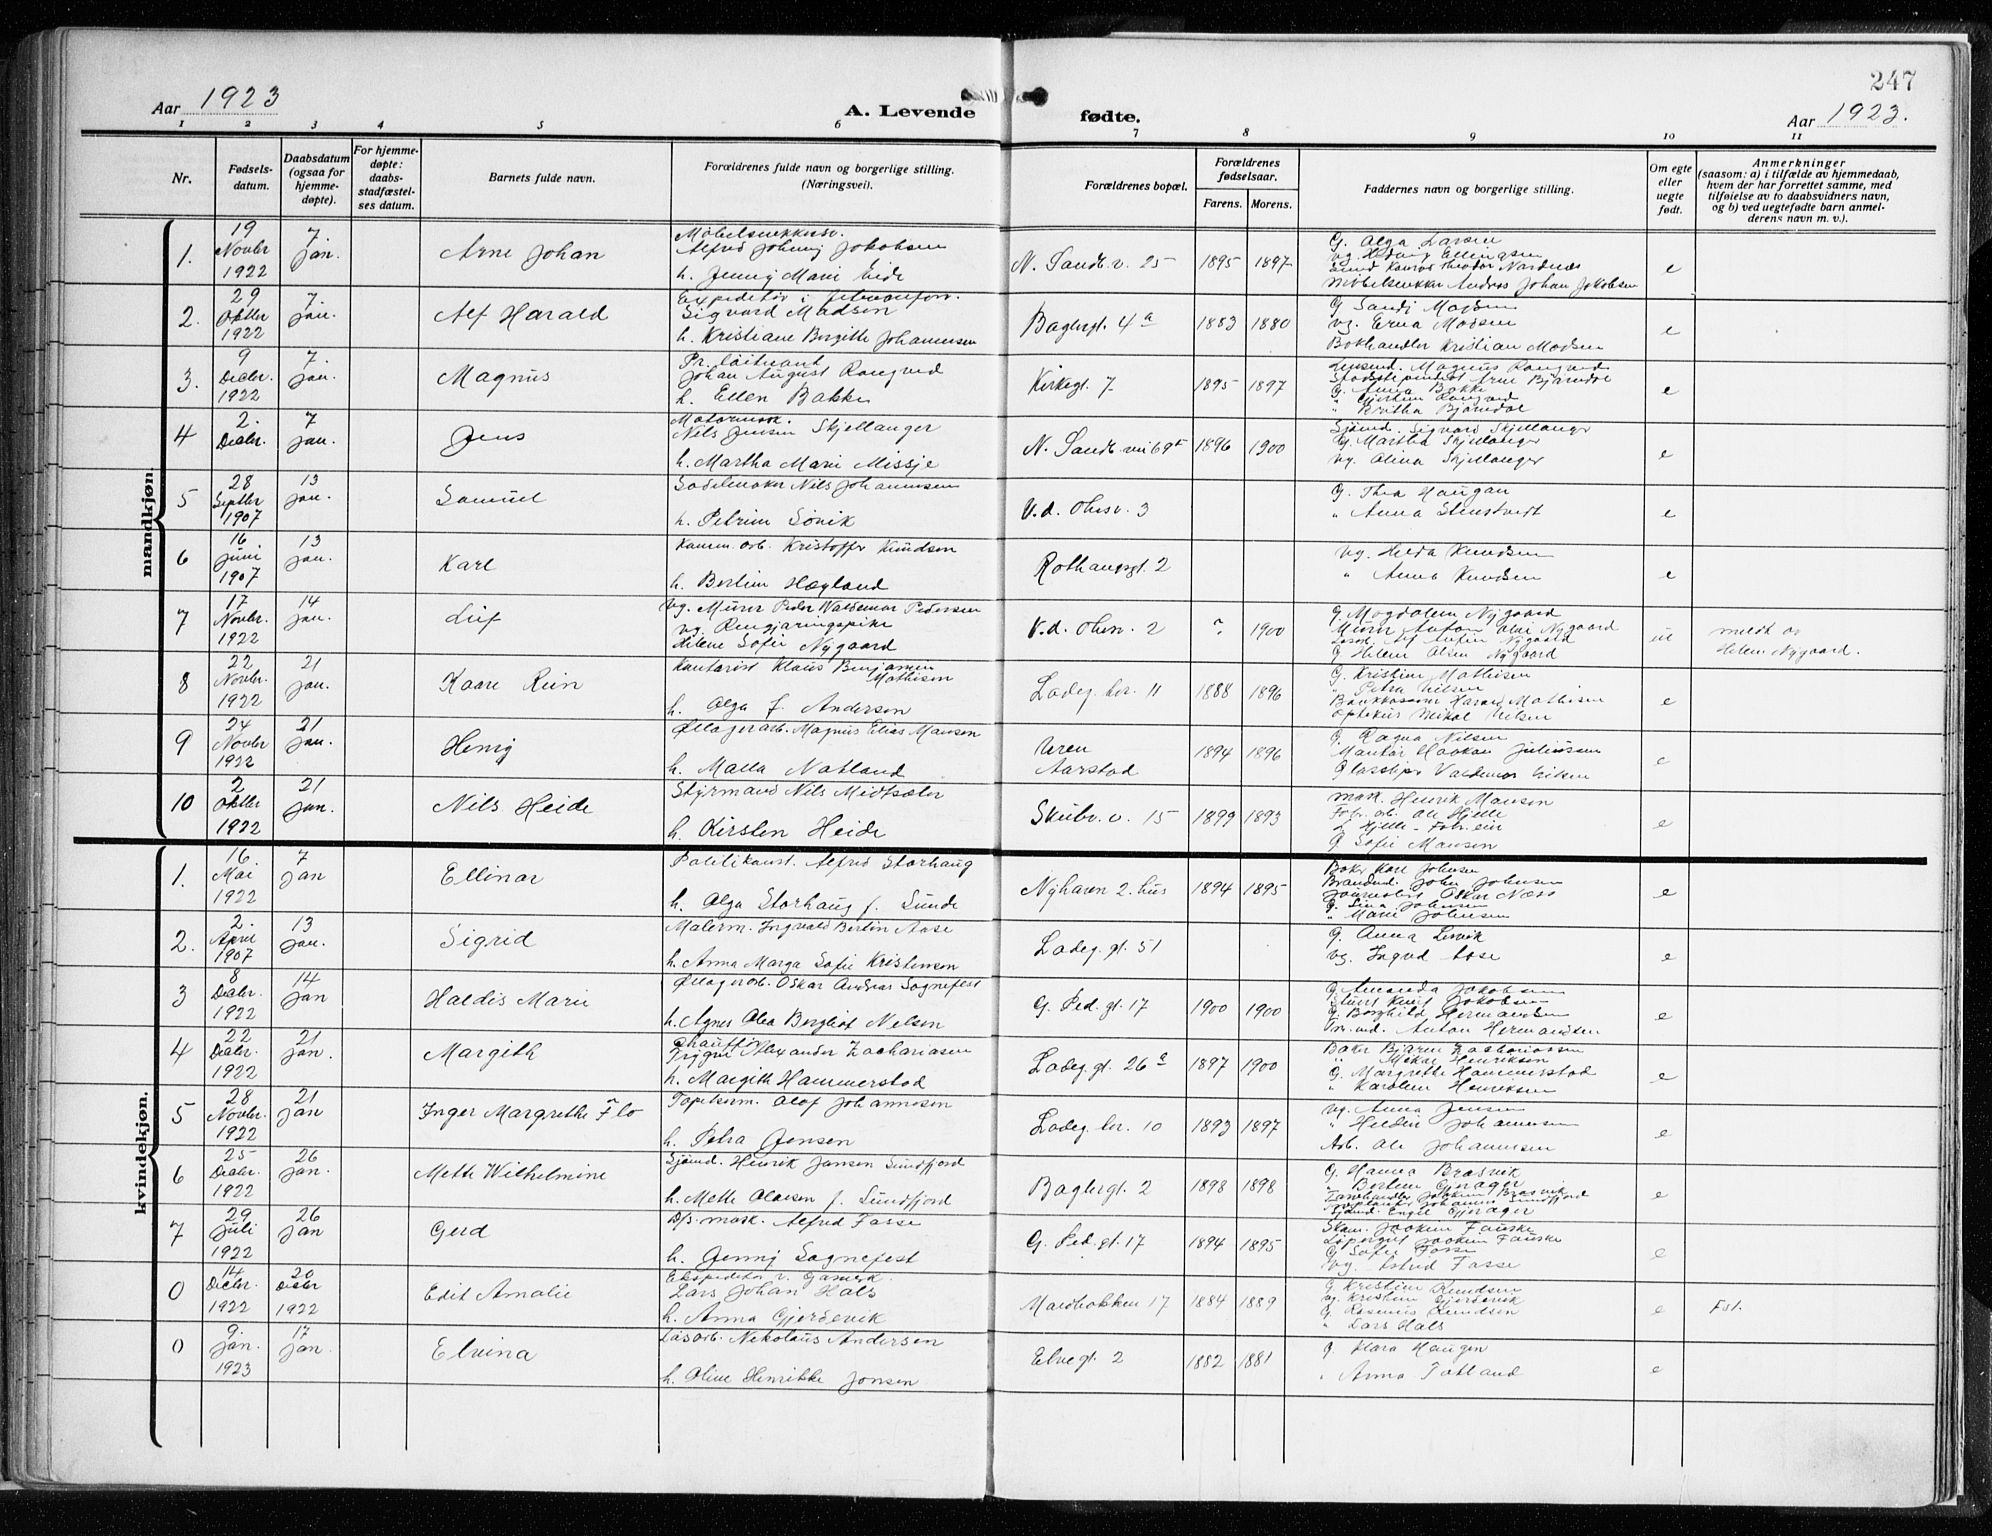 247
Aar 1923
A. Levende fødte.
Aar 1923.
1 2 3 4 5 6 7 8 9 10 11
Nr.
Fødsels-
datum.
Daabsdatum
(ogsaa for
hjemme-
døpte).
For hjemme-
døpte:
daabs-
stadfæstel-
ses datum.
Barnets fulde navn.
Forældrenes fulde navn og borgerlige stilling.
(Næringsvei).
Forældrenes bopæl.
Forældrenes
fødselsaar.
Farens. Morens.
Faddernes navn og borgerlige stilling.
Om egte
eller
uegte
født.
Anmerkninger
(saasom: a) i tilfælde av hjemmedaab,
hvem der har forrettet samme, med
tilføielse av to daabsvidners navn,
og b) ved uegtefødte barn anmel-
derens navn m. v.).
mandkjøn.
1. 19 Novbr 1922 7 Jan. Arne Johan
Alfred Johnny Jakobsen
h. Jenny Marie Eide
N. Sandv. v. 25 1895 1897
G. Olga Larsen
Møbelsnekker Andreas Johan Jakobsen
e
2. 29 Oktbr 1922 7. Jan. Alf Harald
Sigvard Madsen
h. Kristiane Bergitte Johannesen
Baglergt. 4a 1883 1880
G Sandj Madsen
vg. Erna Madsen
Bokhandler Kristian Madsen
e
3. 9 Decbr. 1922 7. Jan. Magnus
Pr. løitnant
Johan August Rongved
h. Ellen Bakke
Kirkegt. 7 1895 1897
G. Anna Bakke
" Britha Bjørndal
e
4 2. Decbr. 7 Jan. Jens
Nils Jensen Skjellanger
h. Martha Marie Missje
N. Sandv. vei 69a 1896 1900
Sjømd. Sigvard Skjellanger
G. Martha Skjellanger
vg. Olina Skjellanger
e
5 28 Septbr 1907 13 Jan. Samuel
Sadelmaker Nils Johannesen
h. Petrine Sønik
V. d. Ohsv. 3
G. Thea Haugan
" Anna Stenstvedt
e
6 16 Juni 1907 13 Jan. Karl
Komm. arb. Kristoffer Knudsen
h. Bertine Høyland
Rothaugsgt. 2
vg. Hilda Knudsen
" Anna Knudsen
e
7 17 Novbr. 1922 14 Jan. Leif
vg. Murer Peder Valdemar Pedersen
vg. Rengjøringspike
Helene Sofie Nygaard
V. d. Ohsv. 2 ? 1900
G. Magdalene Nygaard
Murer Anton Olai Nygaard
G Helene Olsen Nygaard
u
meldt av
Helene Nygaard.
8 22 Novbr. 1922 21 Jan. Kaare Rein
Kontorist Klaus Benjamin Mathisen
h. Olga f. Andersen
Ladeg. br. 11 1888 1896
G. Kristine Mathisen
" Petra Nilsen
Bankkasserer Harald Mathisen
Optikus Mikal Nilsen
e
9 24 Novbr 1922 21 Jan. Henry
Øllagerarb. Magnus Elias Mansen
h. Malla Natland
Uren
Aarstad 1894 1896
G. Ragna Nilsen
Montør Haakon Juliussen
Glassliper Valdemar Nilsen
e
10 2 Oktbr 1922 21 Jan. Nils Heide
Styrmand Nils Midtsæter
h. Kirsten Heide
Skutev. v. 15 1899 1893
mask. Henrik Mansen
Fabr. arb. Ole Hjelle
G Sofie Mansen
e
kvindekjøn.
1. 16. Mai 1922 7 Jan Ellinor
Politikonst. Alfred Storhaug
h. Olga Storhaug f. Sunde
Nyhavn 2. hus 1894 1895
Baker Karl Johnsen
Brandmd. John Johnsen
Journalist Oskar Næss
G. Lina Johnsen
" Marie Johnsen
e
2. 2. April 1907 13 Jan. Sigrid
Malerm. Ingvald Bertin Aase
h. Anna Marga Sofie Kristensen
Ladeg. gt. 51
G. Anna Lervik
vg. Ingvd Aase
e
3 8 Decbr. 1922 14 Jan Haldis Marie
Øllagerarb. Oskar Andreas Sognefest
h. Agnes Olea Bergliot Nelson
G. Ped. gt. 17 1900 1900
G. Amanda Jakobsen
Stuert Knut Jakobsen
G. Borghild Hermansen
Anton Hermandsen
e
4 22 Decbr. 1922 21 Jan. Margith
Chauffør
Trygve Alexander Zachariasen
h. Margith Hammerstad
Ladeg. gt. 26a 1897 1900
Baker Bjarne Zachariassen
" Mikal Henriksen
G. Margrethe Hammerstad
" Karoline Henriksen
e
5 28 Novbr. 1922 21 Jan Inger Margrethe Flo
Tapetserm. Olaf Johannesen
h. Petra Jensen
Ladeg. br. 10 1893 1897
vg. Anna Jensen
" Heldine Johannesen
Arb. Ole Johannesen
e
6 25 Decbr. 1922 26 Jan. Mette Wilhelmine
Sjømd. Henrik Jansen Sundfjord
h. Mette Olausen f. Sundfjord
Baglergt. 2 1898 1898
G. Hanna Brasvik
" Bertine Gjerager
Sjømd. Engel Gjerager
e
7 29 Juli 1922 26 Jan Gerd
D/s. mask. Alfred Fasse
h. Jenny Sognefest
G. Ped. gt. 17 1894 1895
Skom. Joakim Fauske
Løpergut Joakim Fauske
G Sofie Fasse
vg. Astrid Fasse
e
0 14 Decbr. 1922 20 Decbr 1922 Edit Amalie
Lars Johan Hals
h. Anna Gjerdevik
Mardbakken 17 1884 1889
G Kristine Knudsen
vg. Kristine Gjerdevik
G Rasmus Knudsen
" Lars Hals
e
Fst.
0 9. Jan. 1923 17 Jan Elvina
Løsarb. Nikolaus Andersen
h. Oline Henrikke Jonsen
Elvegt. 2 1882 1881
G Klara Haugen
" Anna Totland
e